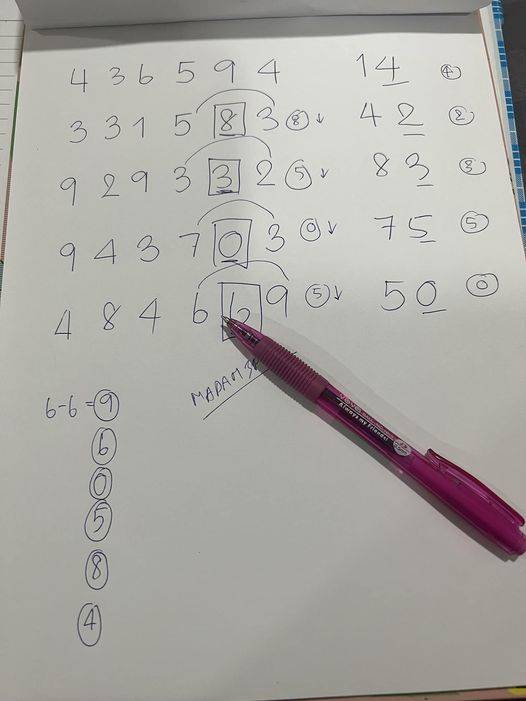 4 3 6 5 9 4 14 4
3 3 1 5 8 3 8 ↓ 4 2 2
9 2 9 3 3 2 5 ↓ 8 3 3
9 4 3 7 0 3 0 ↓ 7 5 5
4 8 4 6 6 9 5 ↓ 5 0 0
MADAM
6-6=9
6
0
5
8
4
Always my Friends!